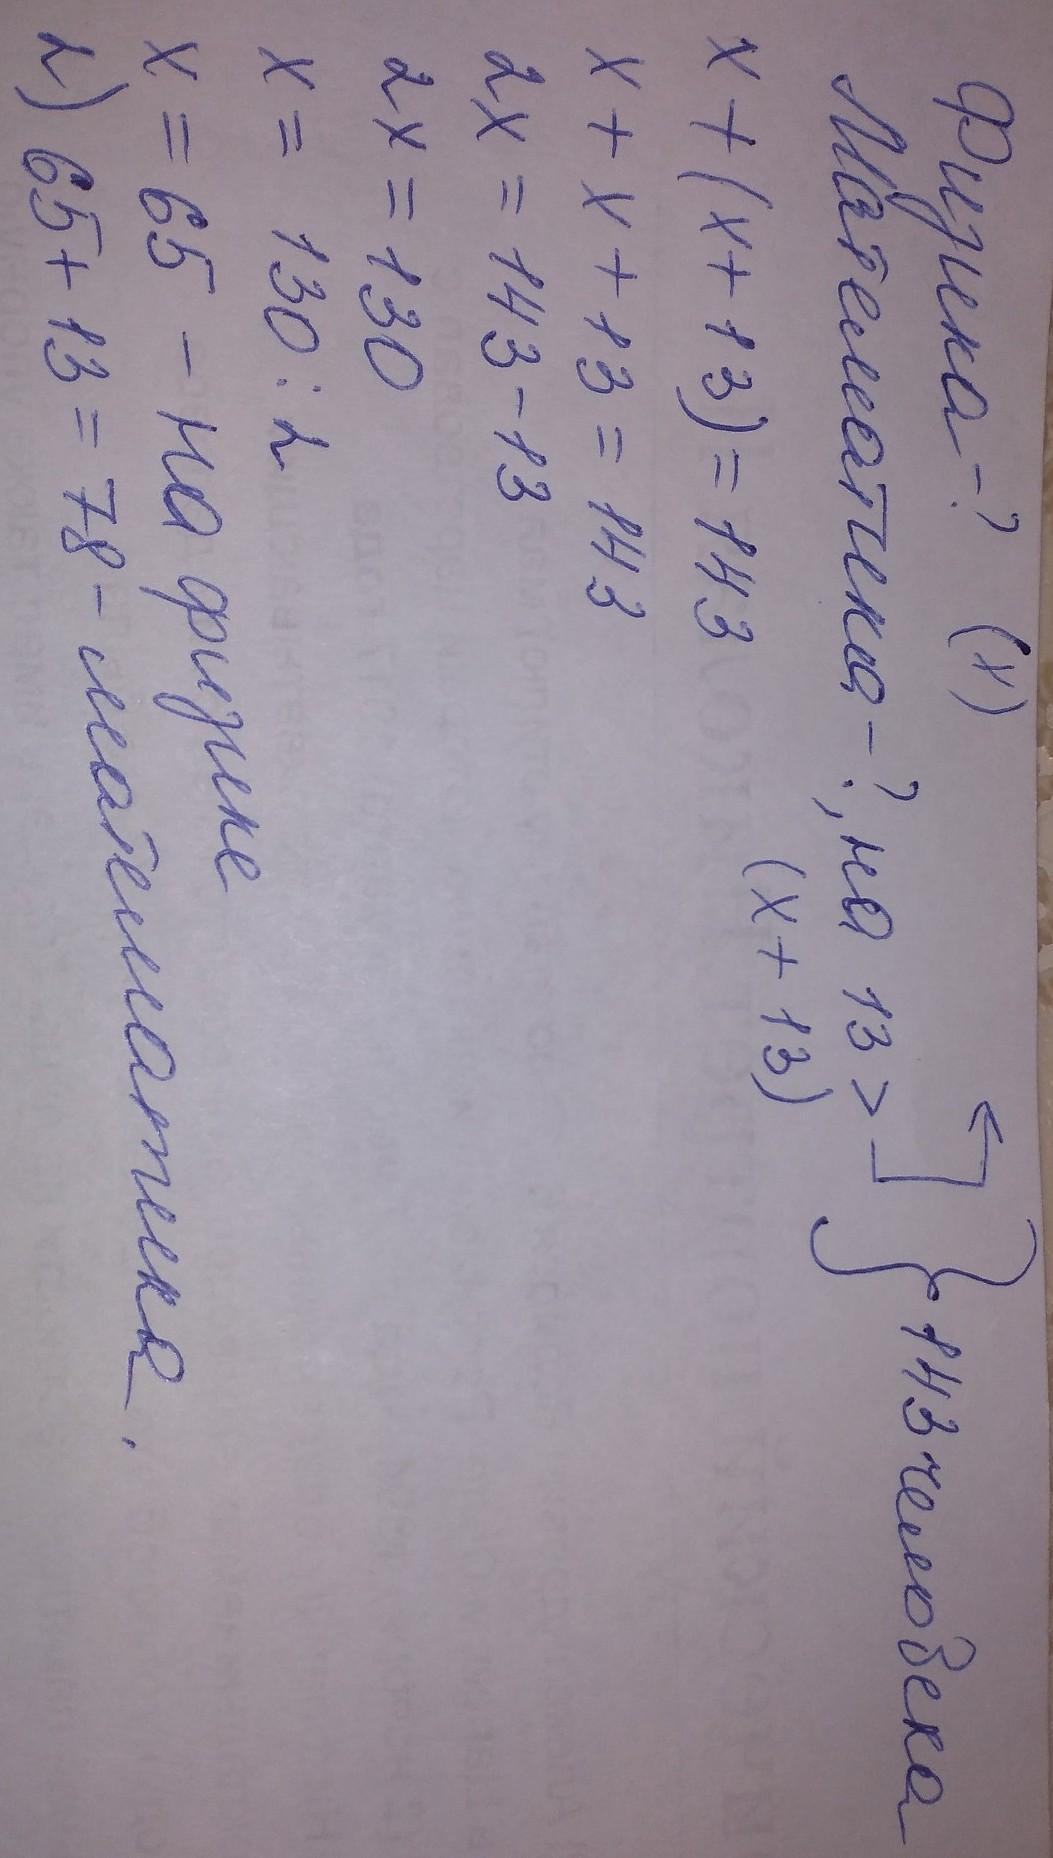 Физика - ? (х)
Математика - ?, на 13 > } 143 человека
(х + 13)
х + (х + 13) = 143
х + х + 13 = 143
2х = 143 - 13
2х = 130
х = 130 : 2
х = 65 - на физике
2) 65 + 13 = 78 - математике.